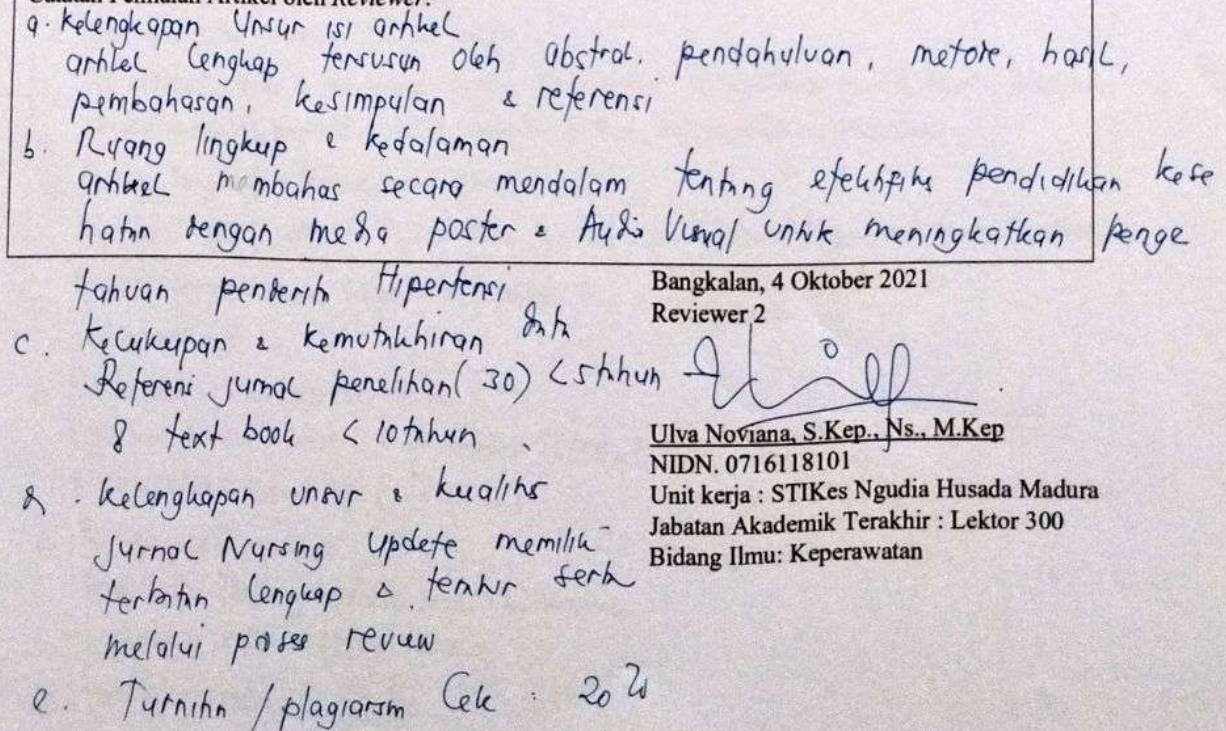 Catatan Penilaian Artikel oleh Reviewer:
a. Kelengkapan Unsur isi artikel
artikel lengkap tersusun oleh abstrak, pendahuluan, metode, hasil,
pembahasan, kesimpulan & referensi
b. Ruang lingkup & kedalaman
artikel membahas secara mendalam tentang efektifitas pendidikan kese
hatan dengan media poster & Audio Visual untuk meningkatkan penge
tahuan penderita Hipertensi
c. Kecukupan & kemutakhiran data
Referensi jurnal penelitian (30) < 5 tahun
8 text book < 10 tahun.
d. Kelengkapan unsur & kualitas
Jurnal Nursing Update memiliki
terbitan lengkap & teratur serta
melalui proses review
e. Turnitin / plagiarsm Cek : 20 %
Bangkalan, 4 Oktober 2021
Reviewer 2
Ulva Noviana, S.Kep., Ns., M.Kep
NIDN. 0716118101
Unit kerja : STIKes Ngudia Husada Madura
Jabatan Akademik Terakhir : Lektor 300
Bidang Ilmu: Keperawatan